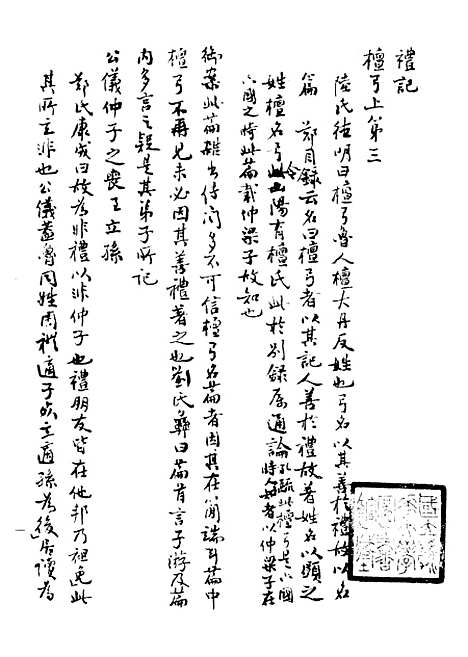 禮記
檀弓上第三
陸氏德明曰檀弓魯人檀大丹反姓也弓名以其善於禮故以名
篇 鄭目錄云名曰檀弓者以其記人善於禮故著姓名以顯之
姓檀名弓今山陽有檀氏此於別錄屬通論孔疏此檀弓是六國時人知者以仲梁子在
六國之時此篇載仲梁子故知也
御案此篇雜出傳聞多不可信檀弓名篇者因其在簡端耳篇中
檀弓不再見未必因其善禮著之也劉氏彝曰篇首言子游及篇
內多言之疑是其弟子所記
公儀仲子之喪至立孫
鄭氏康成曰故為非禮以非仲子也禮朋友皆在他邦乃袒免此
其所立非也公儀蓋魯同姓周禮適子死立適孫為後居讀為
一
國立